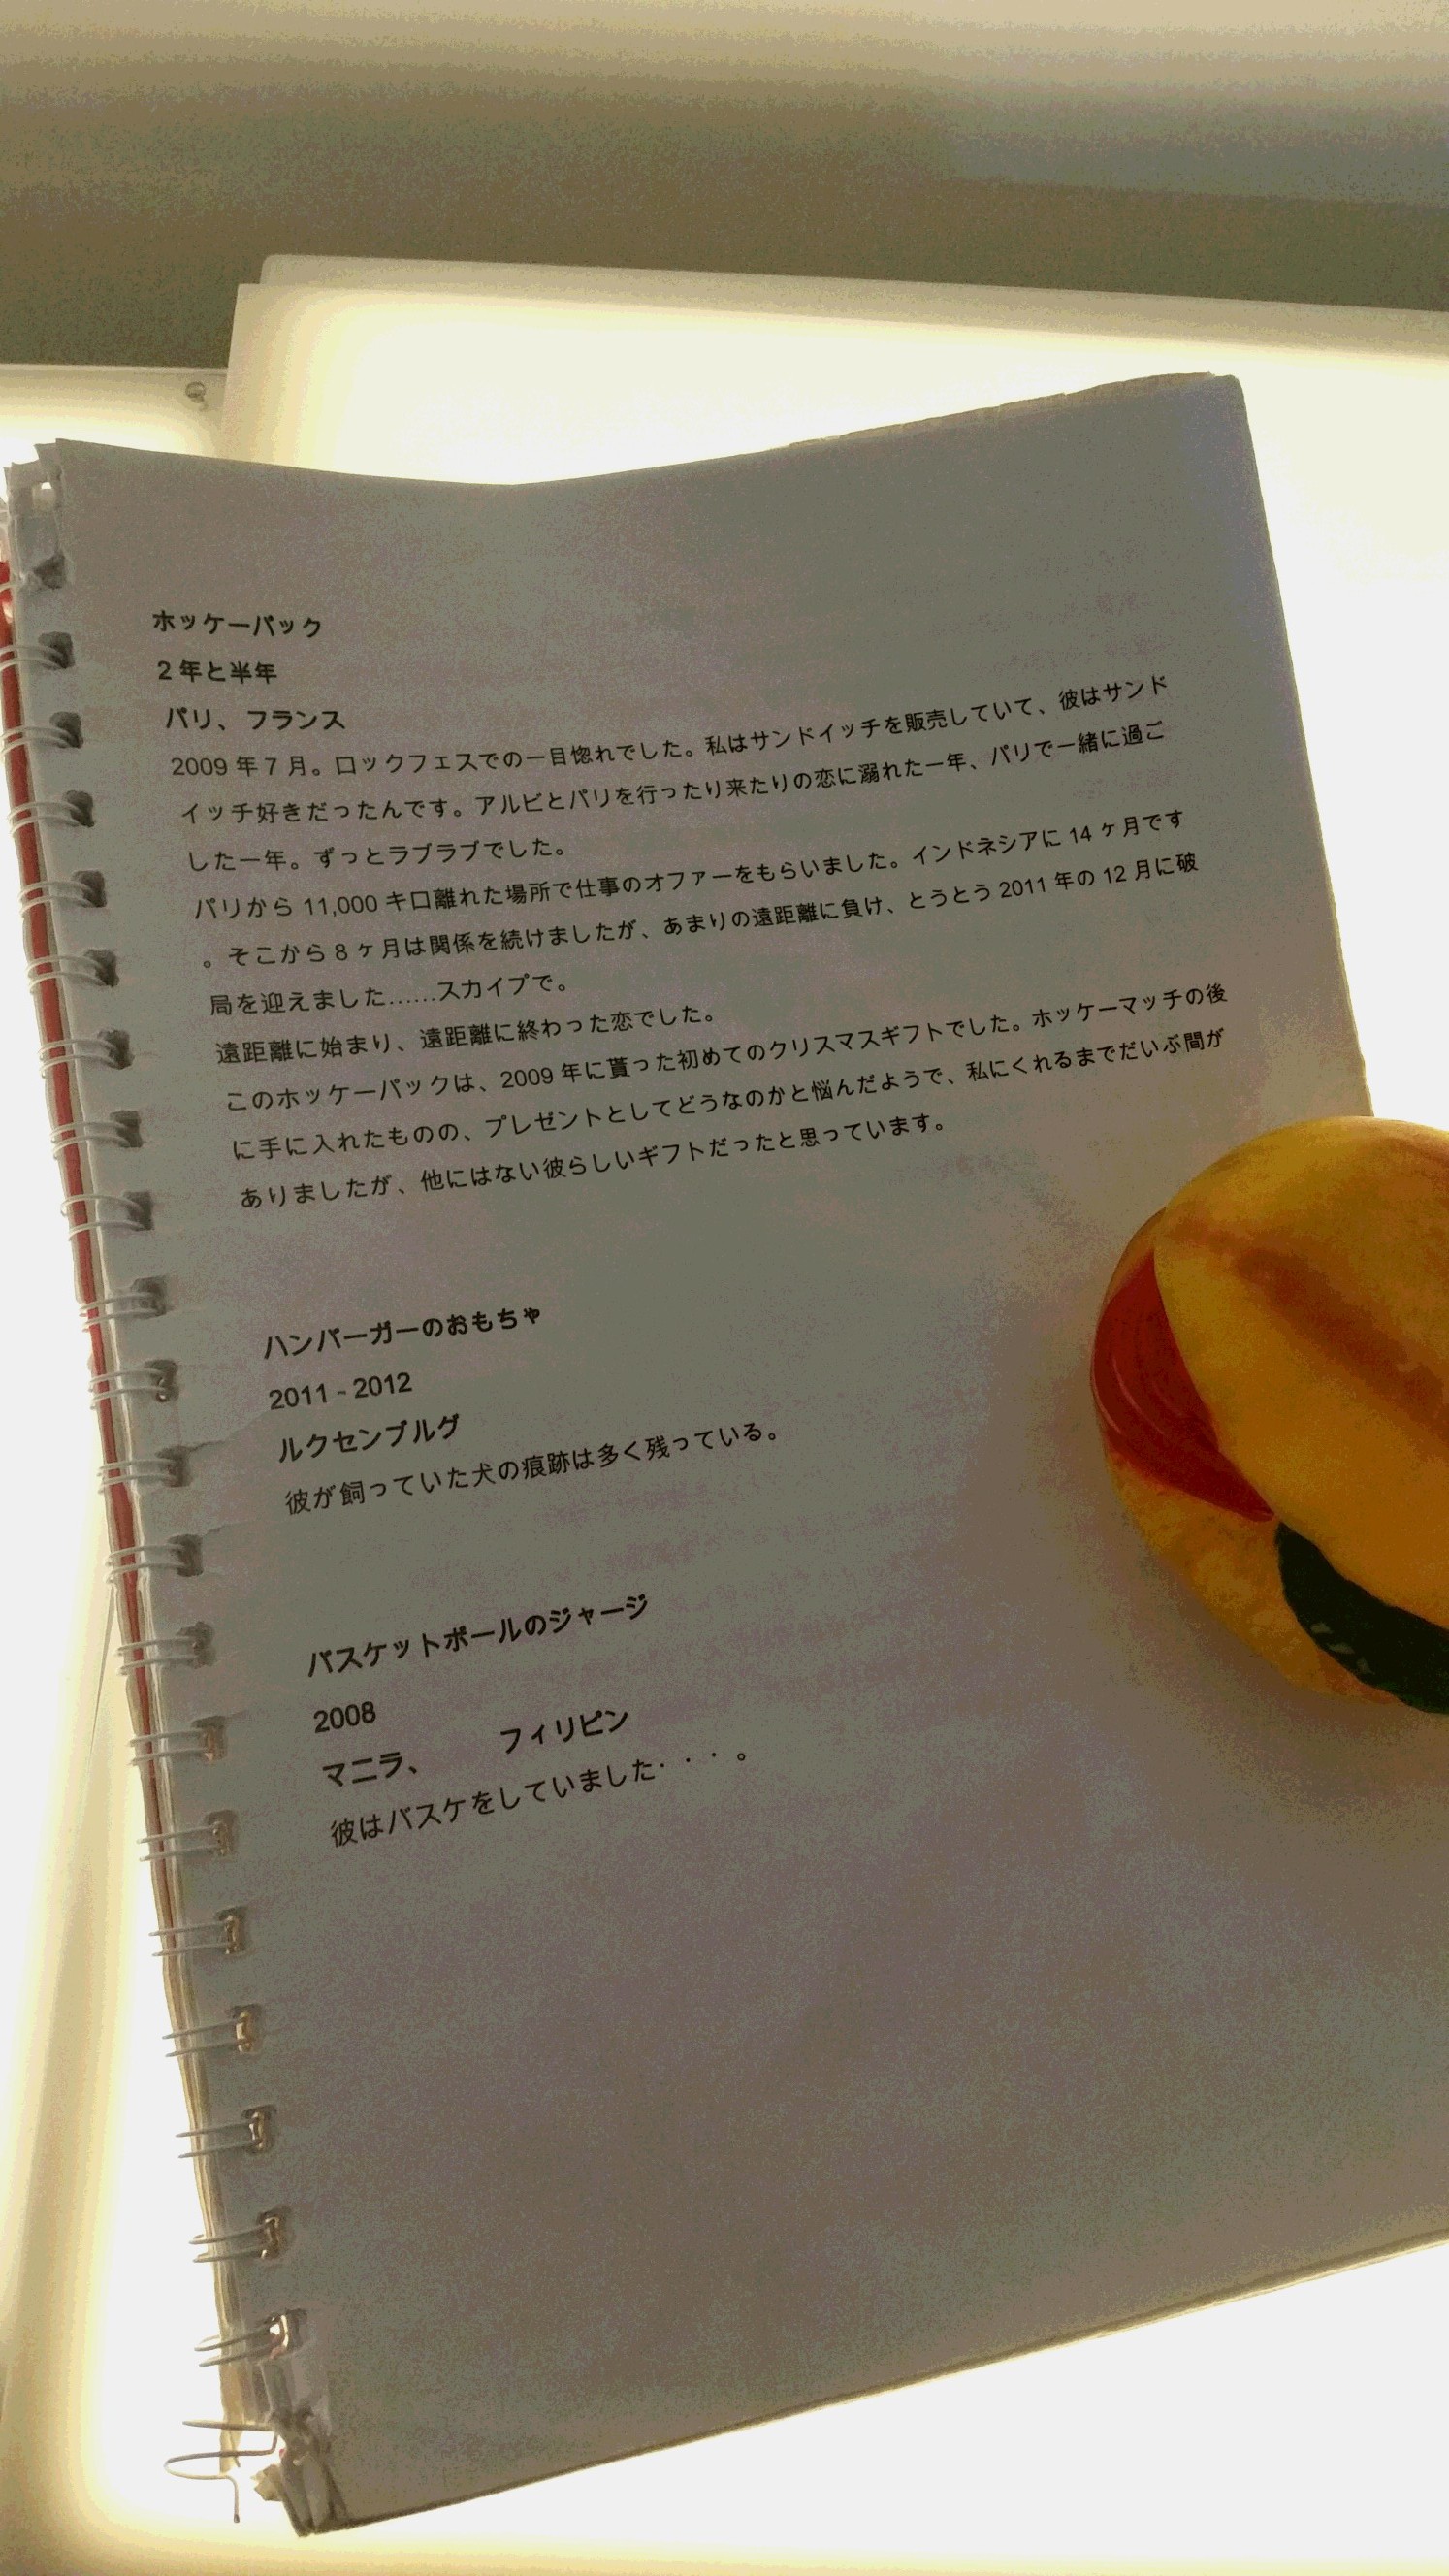 ホッケーパック
2年と半年
パリ、フランス
2009年7月。ロックフェスでの一目惚れでした。私はサンドイッチを販売していて、彼はサンド
イッチ好きだったんです。アルビとパリを行ったり来たりの恋に溺れた一年、パリで一緒に過ご
した一年。ずっとラブラブでした。
パリから11,000キロ離れた場所で仕事のオファーをもらいました。インドネシアに14ヶ月です
。そこから8ヶ月は関係を続けましたが、あまりの遠距離に負け、とうとう2011年の12月に破
局を迎えました……スカイプで。
遠距離に始まり、遠距離に終わった恋でした。
このホッケーパックは、2009年に貰った初めてのクリスマスギフトでした。ホッケーマッチの後
に手に入れたものの、プレゼントとしてどうなのかと悩んだようで、私にくれるまでだいぶ間が
ありましたが、他にはない彼らしいギフトだったと思っています。
ハンバーガーのおもちゃ
2011 - 2012
ルクセンブルグ
彼が飼っていた犬の痕跡は多く残っている。
バスケットボールのジャージ
2008
マニラ、 フィリピン
彼はバスケをしていました・・・。